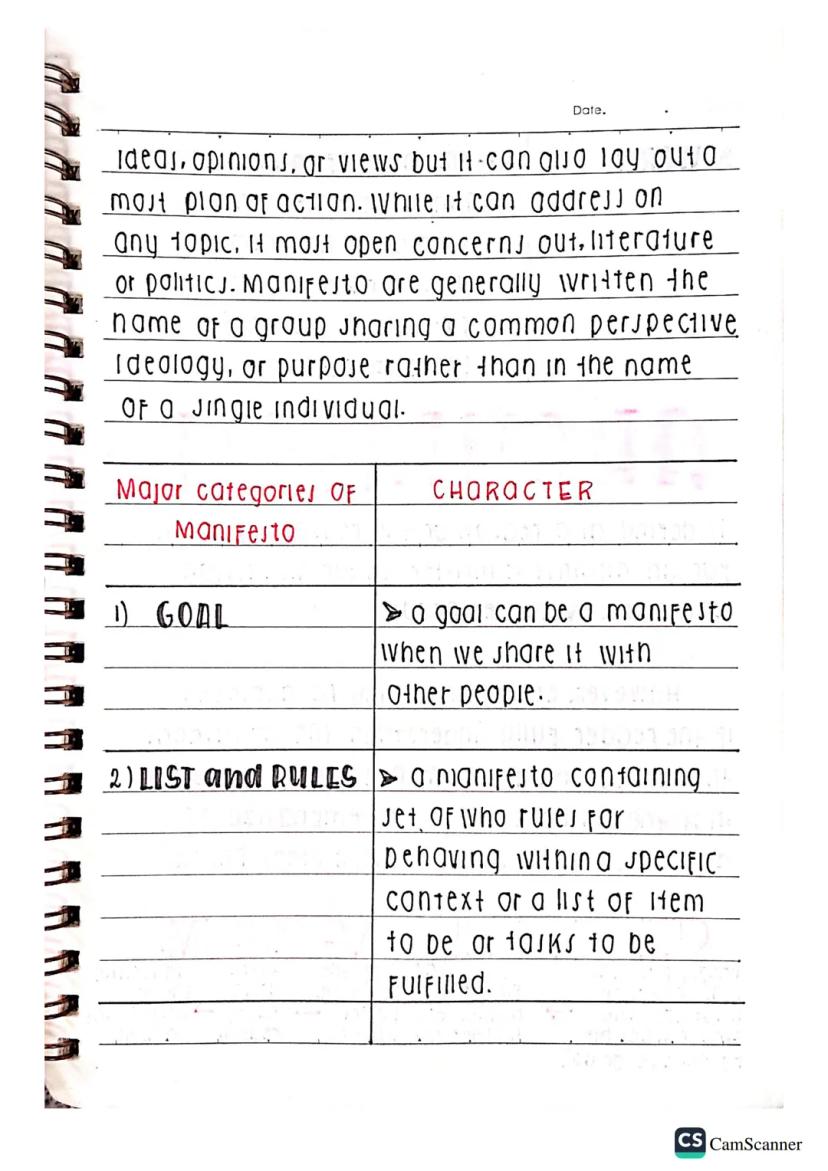 Date.
ideas, opinions, or views but it can also lay out a
most plan of action. While it can address on
any topic, it most open concerns out, literature
or politics. Manifesto are generally written the
name of a group sharing a common perspective
Ideology, or purpose rather than in the name
of a single individual.
Major categories of
Manifesto
CHARACTER
1) GOAL
➢ a goal can be a manifesto
when we share it with
other people.
2) LIST and RULES
➢ a manifesto containing
set of who rules for
behaving within a specific
context or a list of item
to be or tasks to be
fulfilled.
CS CamScanner